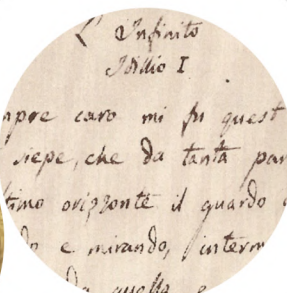 L'Infinito
Idillio I.
mpre caro mi fu quest
siepe, che da tanta par
timo orizzonte il guardo
do e mirando, interm
da quella e